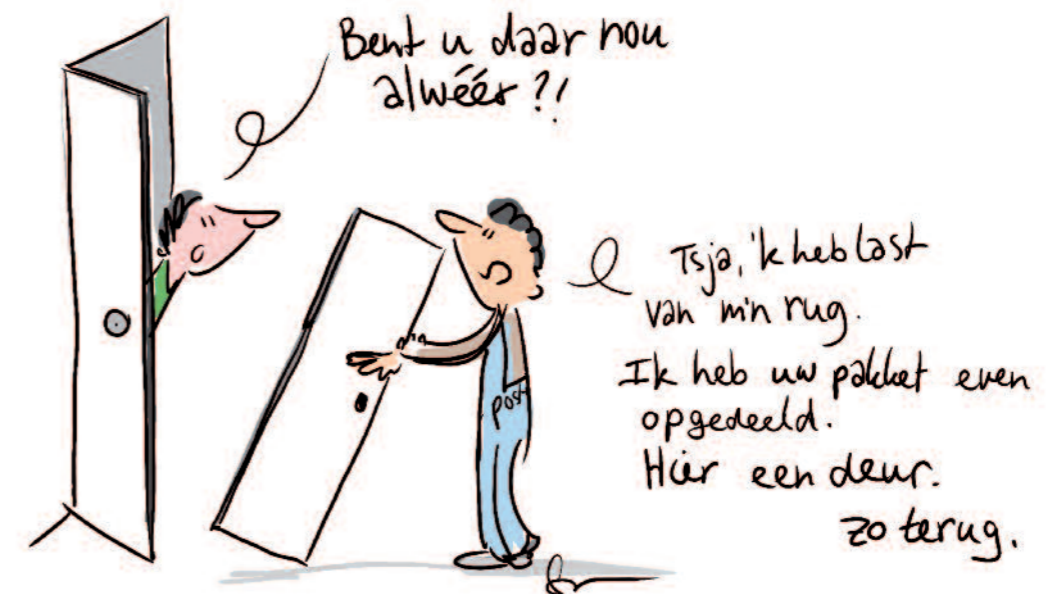 Bent u daar nou
alwéér?!
Tsja, 'k heb last
van m'n rug.
Ik heb uw pakket even
opgedeeld.
Hier een deur.
zo terug.
post